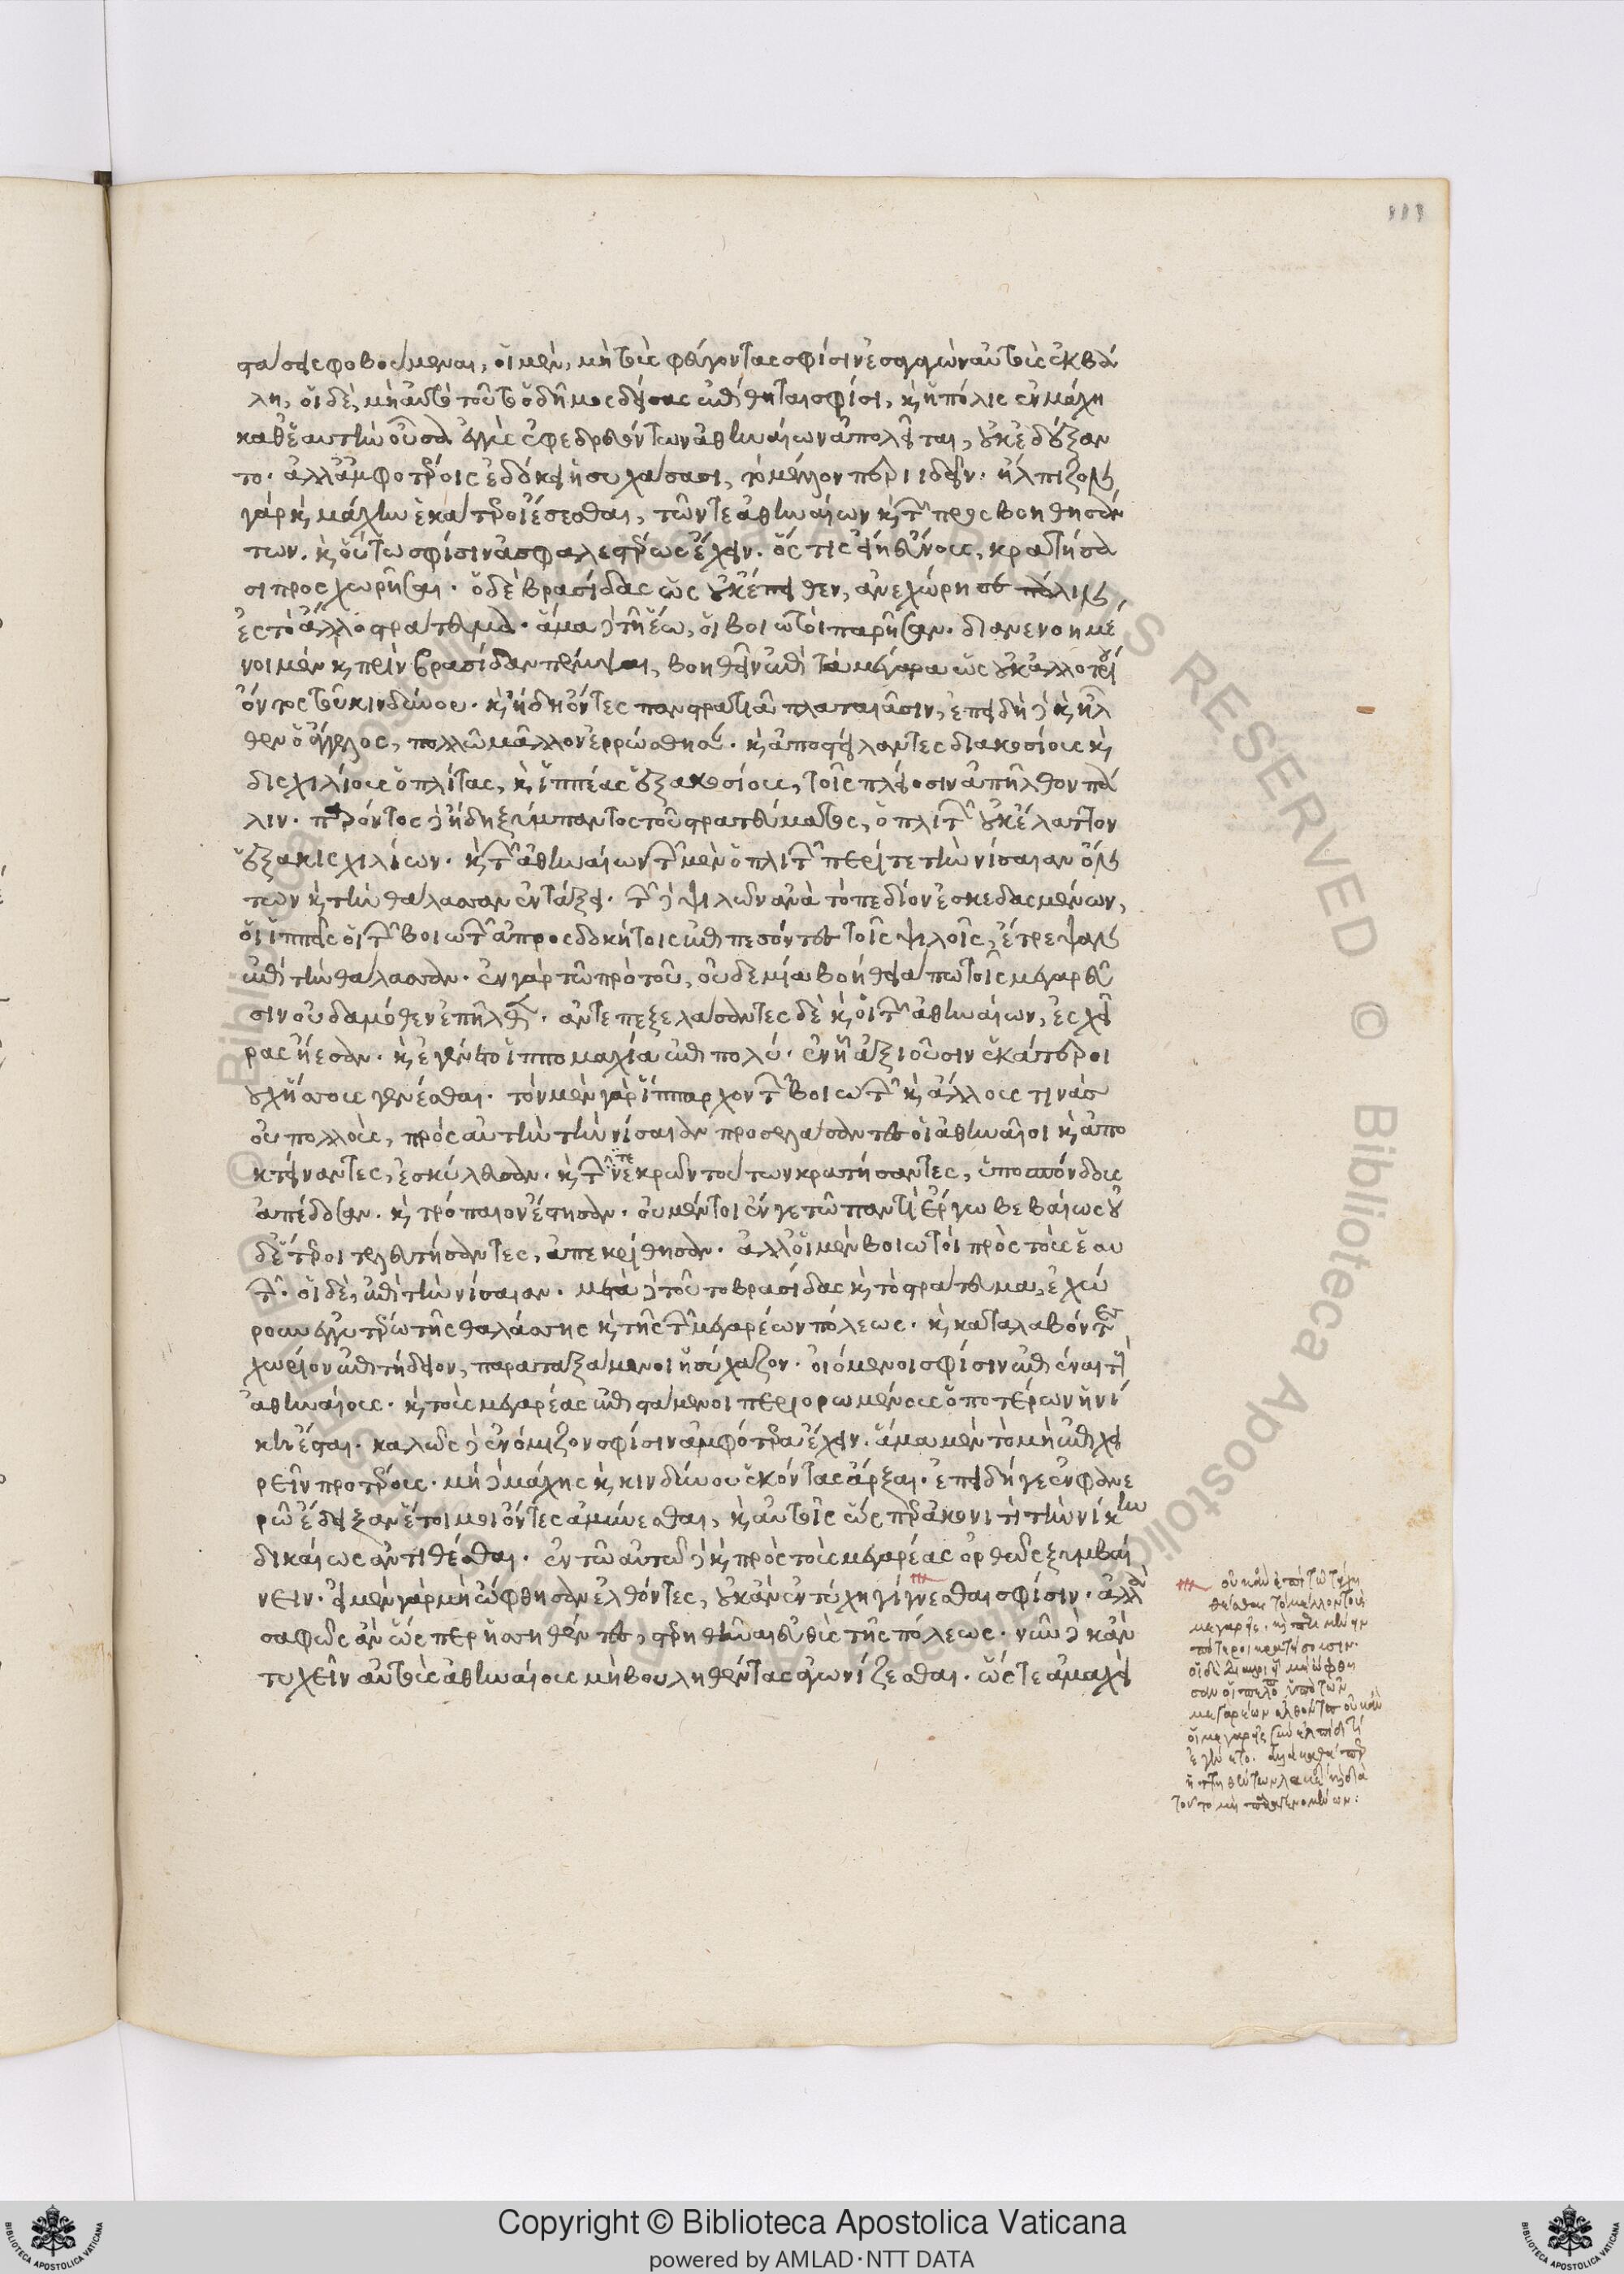 στάσεις φοβούμεναι, οἱ μὲν, μὴ τοὺς φεύγοντας σφίσιν ἐσαγαγὼν αὐτοὺς ἐκβά
λη, οἱ δὲ, μὴ αὐτὸ τοῦτο ὁ δῆμος δείσας ἐπίθηται σφίσι, καὶ ἡ πόλις ἐν μάχη
καθ' ἑαυτὴν οὖσα ἐγγὺς ἐφεδρευόντων ἀθηναίων ἀπολεῖται, οὐκ ἐδέξαν
το. ἀλλ' ἀμφοτέροις ἐδόκει ἡσυχάσασι, τὸ μέλλον περιιδεῖν. ἤλπιζον
γὰρ καὶ μάχην ἑκάτεροι ἔσεσθαι, τῶν τε ἀθηναίων καὶ τῶν προσβοηθησάν
των. καὶ οὕτω σφίσιν ἀσφαλεστέρως ἔχειν. οἷς τις εἴη εὔνους, κρατήσα
σι προσχωρῆσαι. ὁ δὲ βρασίδας ὡς οὐκ ἔπειθεν, ἀνεχώρησε πάλιν
ἐς τὸ ἄλλο στράτευμα. ἅμα δὲ τῆ ἕω, οἱ βοιωτοὶ παρῆσαν. διανενοημέ
νοι μὲν καὶ πρὶν βρασίδαν πέμψαι, βοηθεῖν ἐπὶ τὰ μέγαρα ὡς οὐκ ἀλλοτρίου
ὄντος τοῦ κινδύνου. καὶ ἤδη ὄντες πανστρατιᾶ πλαταιᾶσιν, ἐπειδὴ δὲ καὶ ἦλ
θεν ὁ ἄγγελος, πολλῶ μᾶλλον ἐρρώσθησαν. καὶ ἀποστείλαντες διακοσίους καὶ
δισχιλίους ὁπλίτας, καὶ ἱππέας ἑξακοσίους, τοῖς πλείοσιν ἀπῆλθον πά
λιν. παρόντος δὲ ἤδη ξύμπαντος τοῦ στρατεύματος, ὁπλιτῶν οὐκ ἔλαττον
ἑξακισχιλίων. καὶ τῶν ἀθηναίων τῶν μὲν ὁπλιτῶν περί τε τὴν νίσαιαν ὄν
των καὶ τὴν θάλασσαν ἐν τάξει. τῶν δὲ ψιλῶν ἀνὰ τὸ πεδίον ἐσκεδασμένων,
οἱ ἱππεῖς οἱ τῶν βοιωτῶν ἀπροσδοκήτοις ἐπιπεσόντες τοῖς ψιλοῖς, ἔτρεψαν
ἐπὶ τὴν θάλασσαν. ἐν γὰρ τῶ πρὸ τοῦ, οὐδεμία βοήθειά πω τοῖς μεγαρεῦ
σιν οὐδαμόθεν ἐπῆλθεν. ἀντεπεξελάσαντες δὲ καὶ οἱ τῶν ἀθηναίων, ἐς χεῖ
ρας ἤεσαν. καὶ ἐγένετο ἱππομαχία ἐπὶ πολύ. ἐν ἧ ἀξιοῦσιν ἑκάτεροι
οὐχ ἥσσους γενέσθαι. τὸν μὲν γὰρ ἵππαρχον τῶν βοιωτῶν καὶ ἄλλους τινὰσ
οὐ πολλοὺς, πρὸς αὐτὴν τὴν νίσαιαν προσελάσαντες οἱ ἀθηναῖοι καὶ ἀπο
κτείναντες, ἐσκύλευσαν. καὶ τῶν τε νεκρῶν τούτων κρατήσαντες, ὑποσπόνδους
ἀπέδοσαν. καὶ τρόπαιον ἔστησαν. οὐ μέντοι ἔν γε τῶ παντὶ ἔργω βεβαίως οὐ
δέτεροι τελευτήσαντες, ἀπεκρίθησαν. ἀλλ' οἱ μὲν βοιωτοὶ πρὸς τοὺς ἑαυ
τῶν. οἱ δὲ, ἐπὶ τὴν νίσαιαν. μετὰ δὲ τοῦτο βρασίδας καὶ τὸ στράτευμα, ἐχώ
ρουν ἐγγυτέρω τῆς θαλάσσης καὶ τῆς τῶν μεγαρέων πόλεως. καὶ καταλαβόντες
χωρίον ἐπιτήδειον, παραταξάμενοι ἡσύχαζον. οἰόμενοι σφίσιν ἐπιέναι τοὺς
ἀθηναίους. καὶ τοὺς μεγαρέας ἐπιστάμενοι περιορωμένους ὁποτέρων ἡ νί
κη ἔσται. καλῶς δὲ ἐνόμιζον σφίσιν ἀμφότερα ἔχειν. ἅμα μὲν τὸ μὴ ἐπιχει
ρεῖν προτέρους. μὴ δὲ μάχης καὶ κινδύνου ἑκόντας ἄρξαι. ἐπειδή γε ἐν φανε
ρῶ ἔδειξαν ἕτοιμοι ὄντες ἀμύνεσθαι, καὶ αὐτοῖς ὥσπερ ἀκονιτὶ τὴν νίκην
δικαίως ἀντιθέσθαι. ἐν τῶ αὐτῶ δὲ καὶ πρὸς τοὺς μεγαρέας ὀρθῶς ξυμβαί
νειν. εἰ μὲν γὰρ μὴ ὤφθησαν ἐλθόντες, οὐκ ἂν ἐν τύχη γίγνεσθαι σφίσιν. ἀλλὰ
σαφῶς ἂν ὥσπερ ἡσσηθέντες, στερηθῆναι εὐθὺς τῆς πόλεως. νῦν δὲ κἂν
τυχεῖν αὐτοὺς ἀθηναίους μὴ βουληθέντας ἀγωνίζεσθαι. ὥστε ἀμαχεὶ